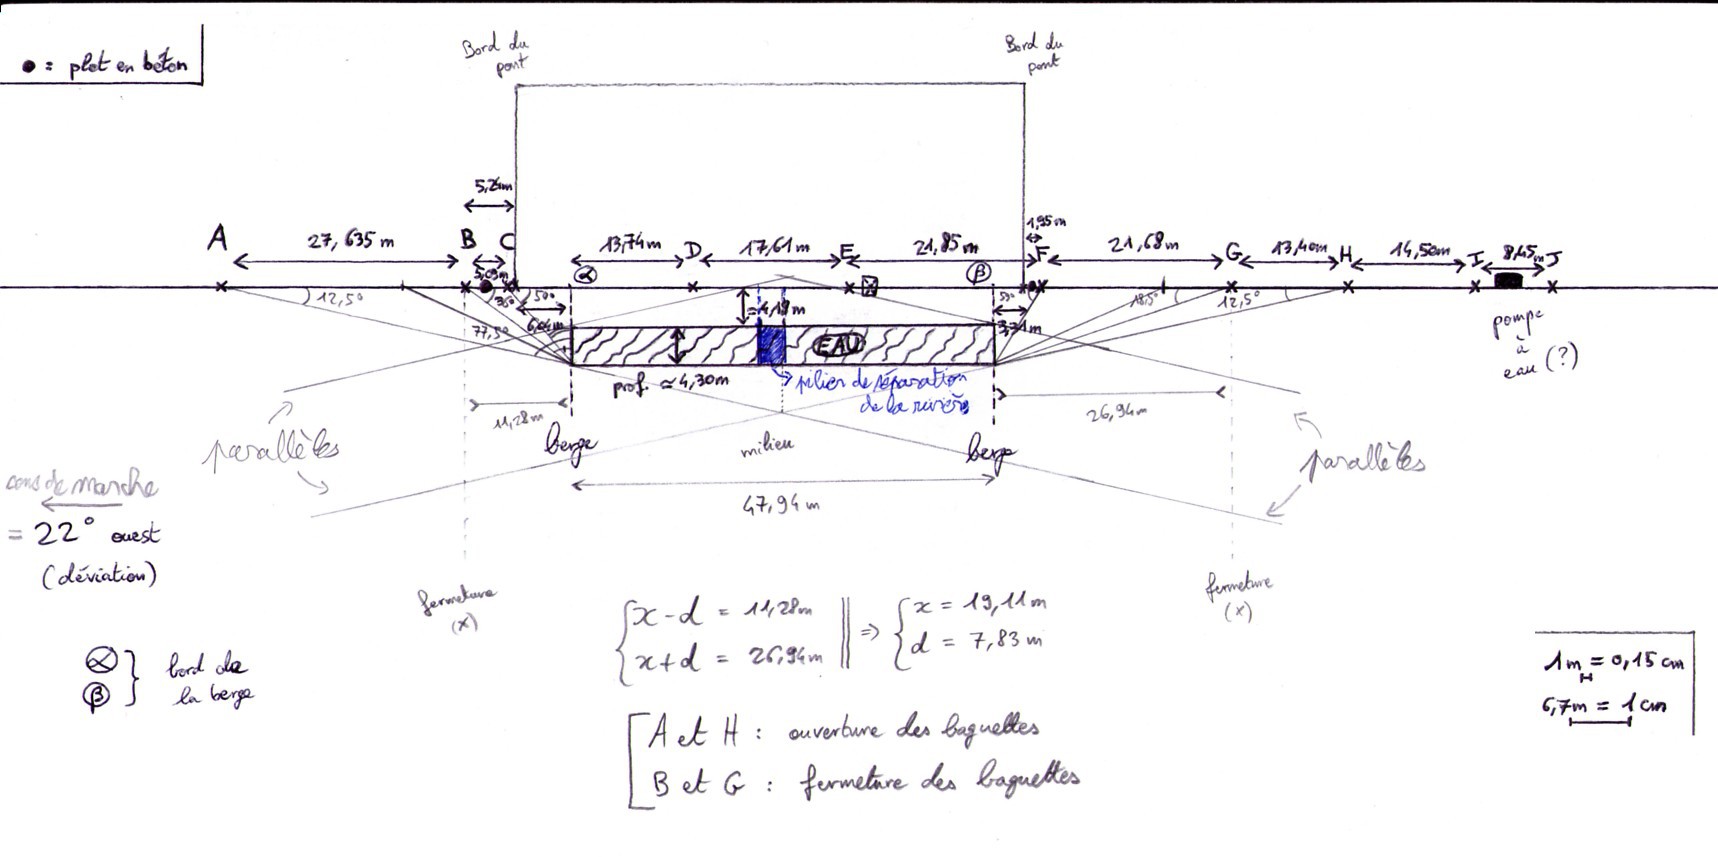 ● = plot en béton
Bord du
pont
Bord du
pont
5,24m
1,95m
A
27,635 m
B
C
13,74m
D
17,61m
E
21,85m
F
21,68m
G
13,40m
H
14,50m
I
8,45m
J
5,09m
α
β
12,5°
35°
50°
50°
18,5°
12,5°
77,5°
6,04m
≃4,19m
3,71m
EAU
pompe
à
eau (?)
prof. ≃ 4,30m
pilier de séparation
de la rivière
11,28m
26,94m
parallèles
berge
milieu
berge
parallèles
47,94 m
sens de marche
= 22° ouest
(déviation)
fermeture
(x)
fermeture
(x)
x-d = 11,28m
x+d = 26,94m
=>
x = 19,11m
d = 7,83 m
α
β
bord de
la berge
1m = 0,15 cm
6,7m = 1 cm
A et H : ouverture des baguettes
B et G : fermeture des baguettes